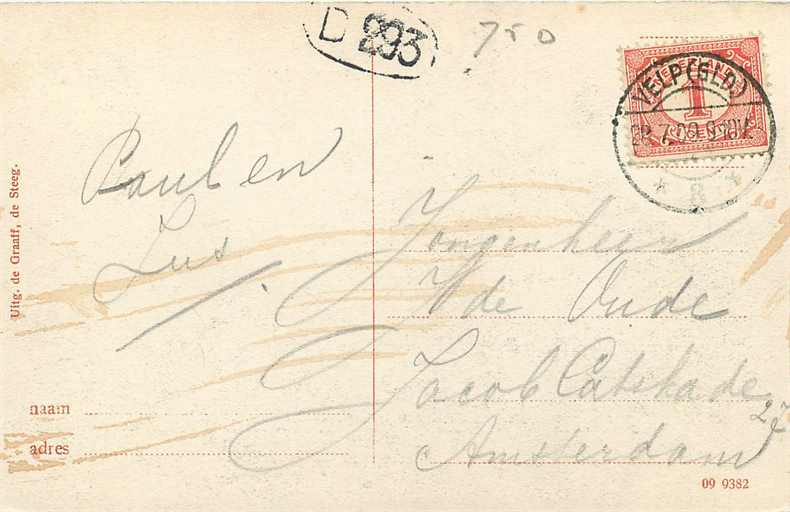 D 293
750
NEDERLAND
1
CENT
VELP (GLD)
22.7.09.9-10V.
* 2 *
Uitg. de Graaff, de Steeg.
Paul en
Lus
Jongenheer
V de Oude
Jacob Catskade
27
Amsterdam
naam
adres
09 9382